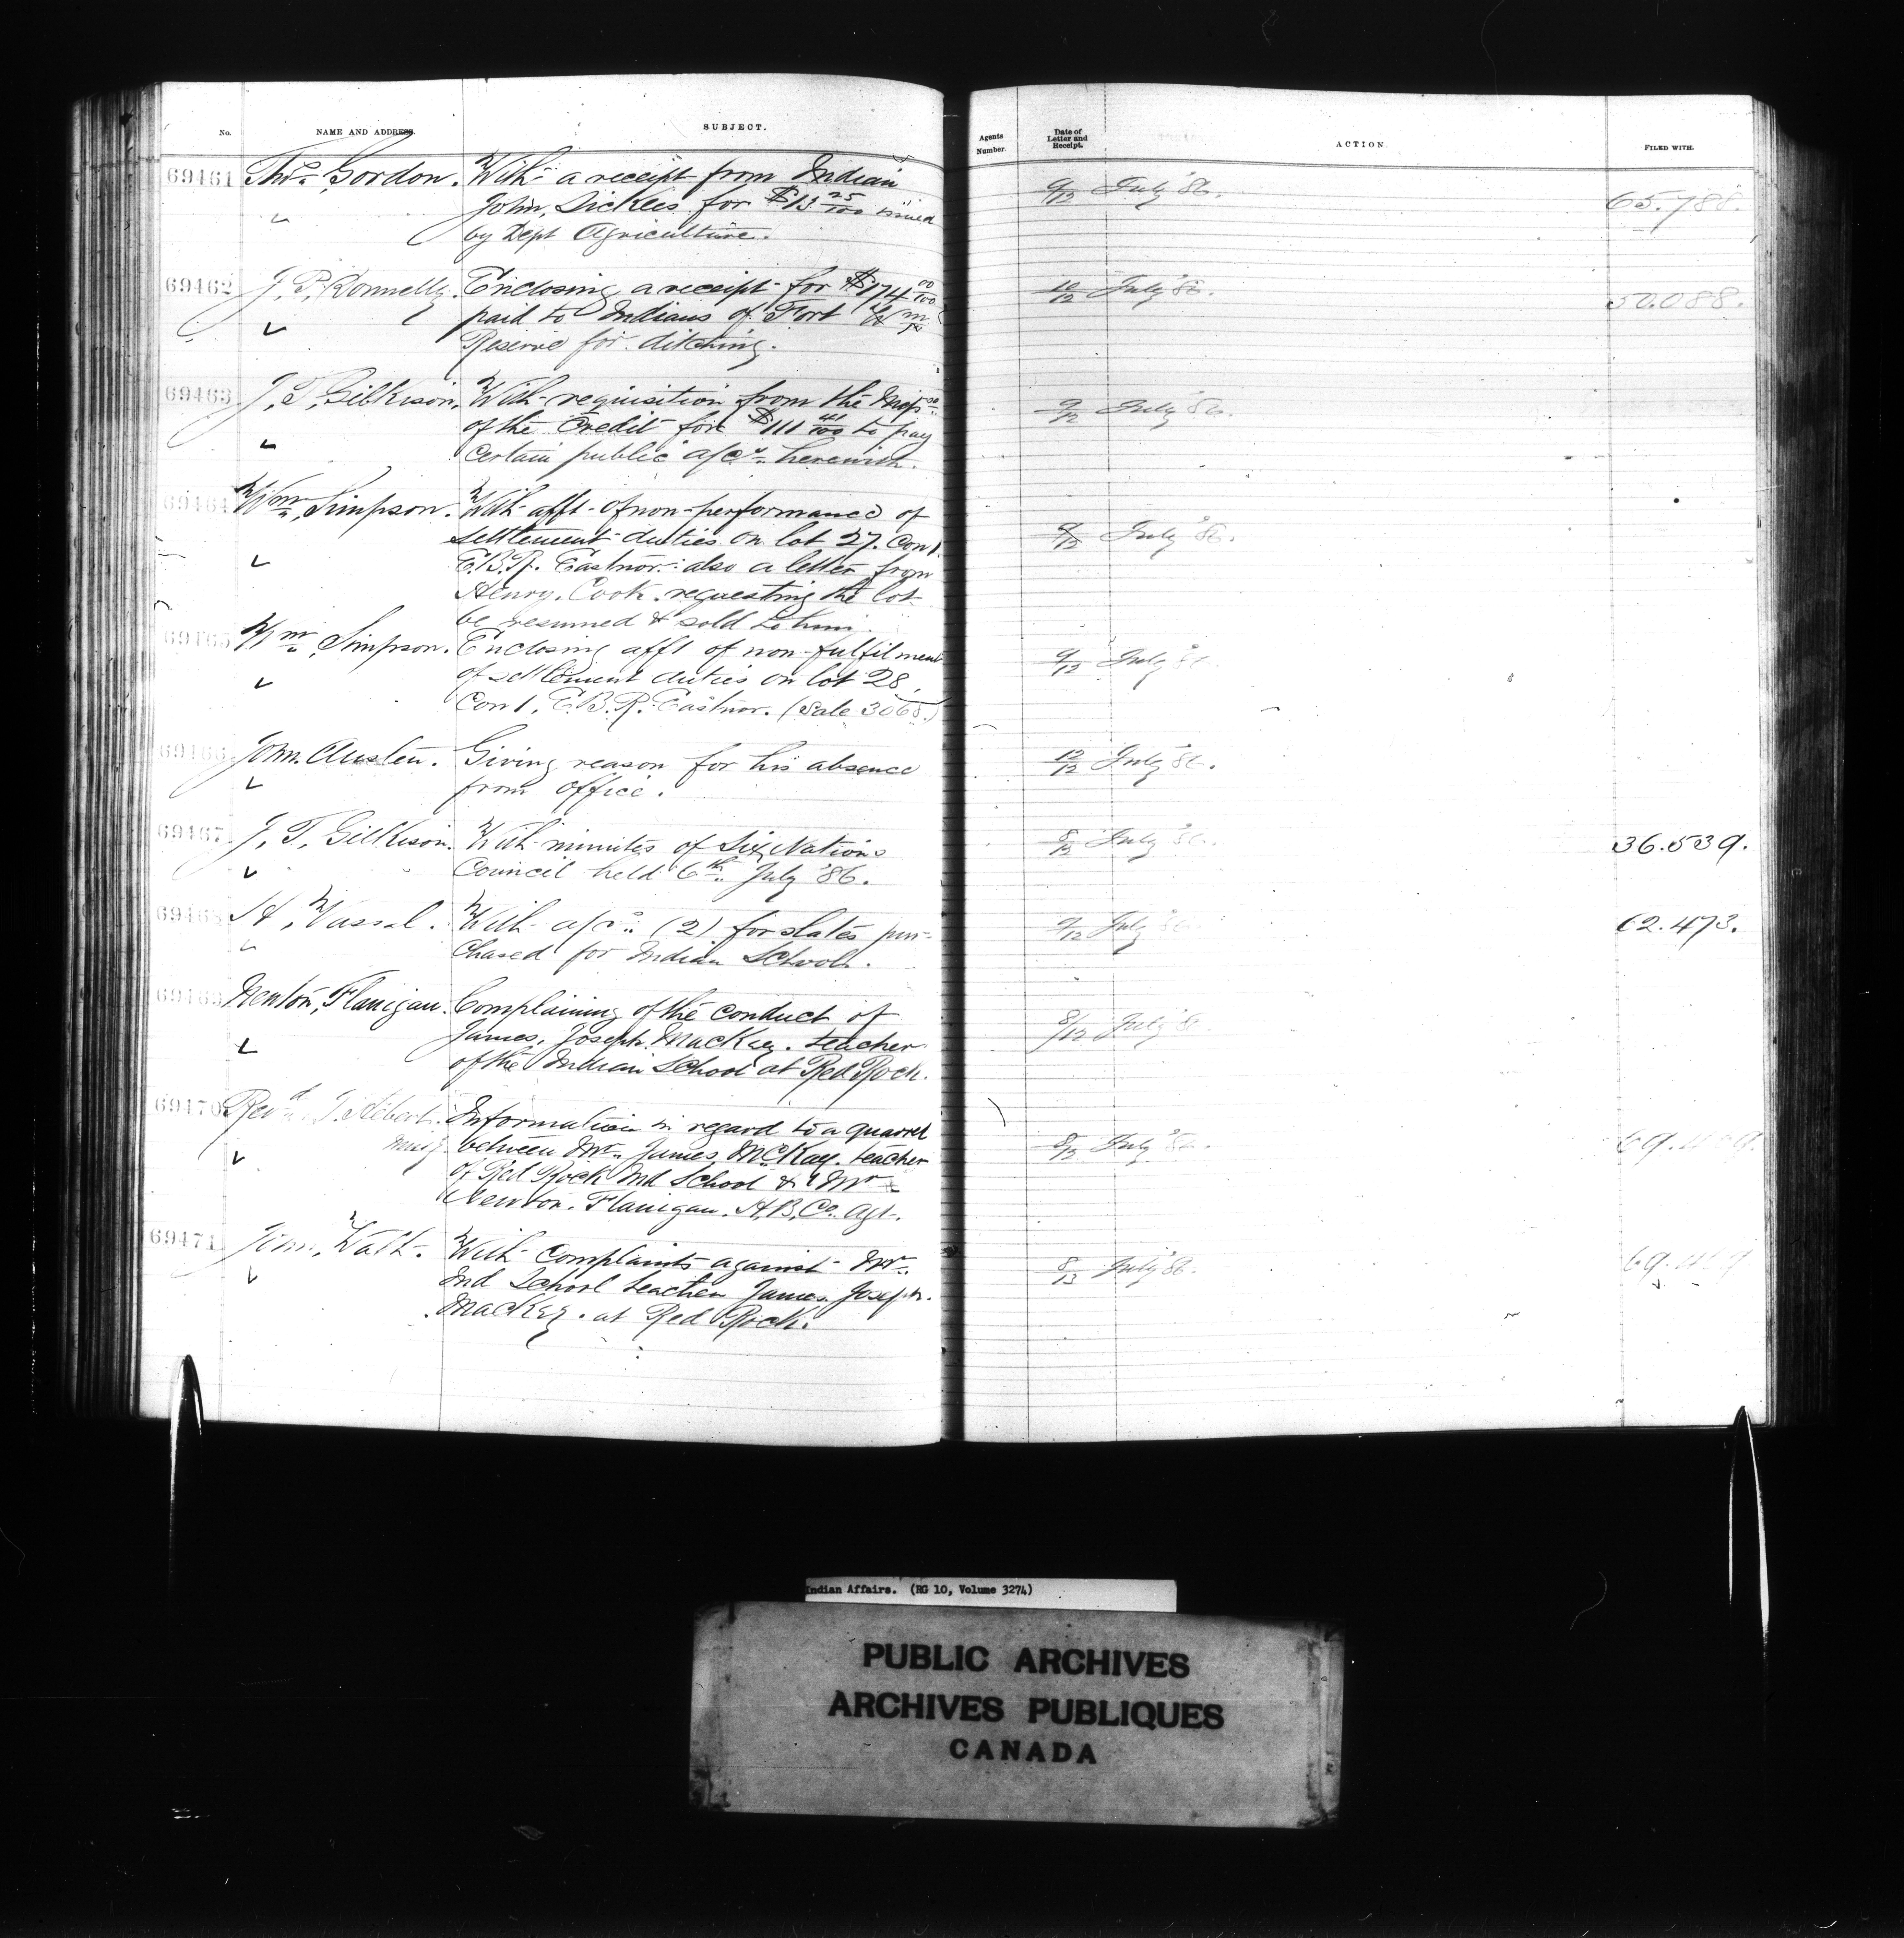 No. NAME AND ADDRESS. SUBJECT. Agents Number. Date of Letter and Receipt. ACTION. FILED WITH.
69461 Thos. Gordon. With a receipt from Indian 9/12 July '86. 65.788.
John, Sickles for $13 25/100 issued
by Dept Agriculture.
69462 J. P. Donnelly. Enclosing a receipt for $174 00/100 10/12 July '86. 50.088.
paid to Indians of Fort Wm
Reserve for ditching.
69463 J. T. Gilkison. With requisition from the Missas 9/12 July '86.
of the Credit for $111 41/100 to pay
certain public a/cs. herewith.
69464 Wm. Simpson. With afft. of non-performance of 8/12 July '86.
settlement duties on lot 27. Con 1.
E.B.R. Eastnor. also a letter from
Henry. Cook. requesting the lot
be resumed & sold to him.
69465 Wm. Simpson. Enclosing afft of non-fulfilment 9/12 July '86.
of settlement duties on lot 28,
Con 1, E.B.R. Eastnor. (Sale 3068.)
69466 John. Austen. Giving reason for his absence 12/12 July '86.
from office.
69467 J. T. Gilkison. With minutes of Six Nations 8/12 July '86. 36.539.
Council held 6th. July '86.
69468 H, Vassal. With a/cs. (2) for slates pur- 9/12 July '86. 62.473.
chased for Indian Schools.
69469 Newton, Flanigan. Complaining of the conduct of 8/12 July '86.
James, Joseph. MacKay. teacher
of the Indian School at Red Rock.
69470 Revd. J. Hebert. Information in regard to a quarrel 8/13 July '86. 69.469.
between Mr. James, McKay. teacher
of Red Rock Ind School & Mr
Newton. Flanigan. H.B. Co. Agt.
69471 Jim, Watt. With Complaints against Mr. 8/13 July '86. 69.469
Ind School teacher James Joseph.
MacKay. at Red Rock.
Indian Affairs. (RG 10, Volume 3274)
PUBLIC ARCHIVES
ARCHIVES PUBLIQUES
CANADA